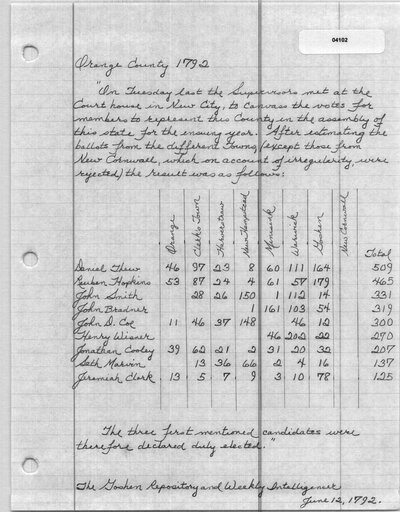 04102
Orange County 1792
"On Tuesday last the Supervisors met at the
Court house in New City, to canvass the votes for
members to represent this County in the assembly of
this state for the ensuing year. After estimating the
ballots from the different Towns (except those from
New Cornwall, which on account of irregularity, were
rejected) the result was as follows:
Orange Clarks Town Haverstraw New Hampstead Minisink Warwick Goshen New Cornwall Total
Daniel Thew 46 97 23 8 60 111 164 509
Reuben Hopkins 53 87 24 4 61 57 179 465
John Smith 28 26 150 1 112 14 331
John Bradner 1 161 103 54 319
John D. Coe 11 46 37 148 46 12 300
Henry Wisner 46 202 22 270
Jonathan Cooley 39 62 21 2 31 20 32 207
Seth Marvin 13 36 66 2 4 16 137
Jeremiah Clark 13 5 7 9 3 10 78 125
The three first mentioned candidates were
therefore declared duly elected."
The Goshen Repository and Weekly Intelligencer
June 12, 1792.